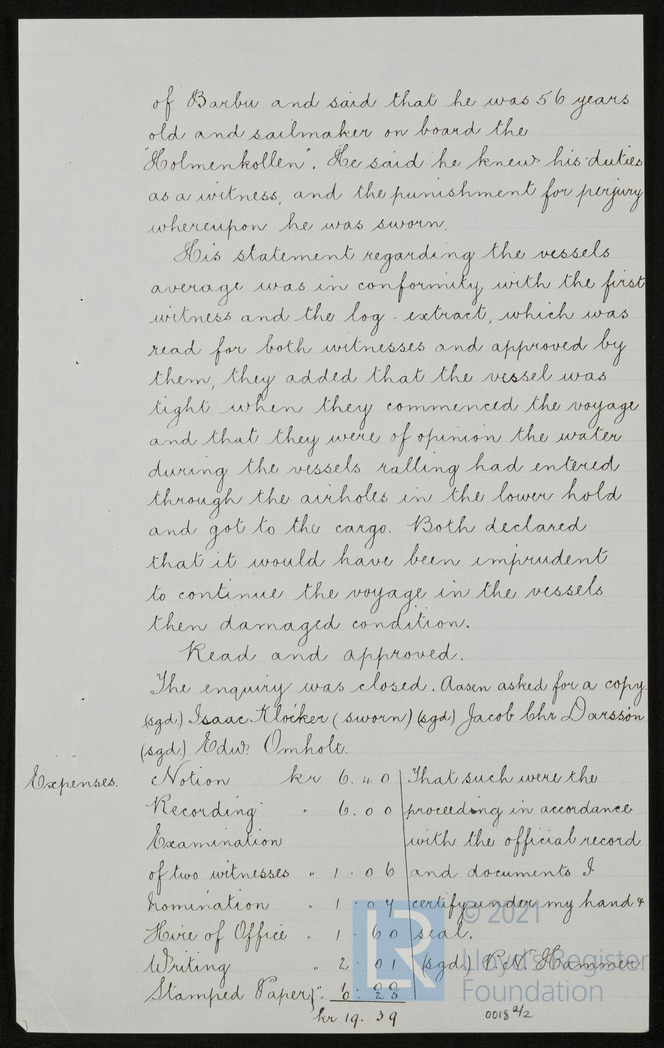 of Barbu and said that he was 56 years
old and sailmaker on board the
"Holmenkollen". He said he knew his duties
as a witness, and the punishment for perjury
whereupon he was sworn.
His statement regarding the vessels
average was in conformity with the first
witness and the log-extract, which was
read for both witnesses and approved by
them, they added that the vessel was
tight when they commenced the voyage
and that they were of opinion the water
during the vessels ralling had entered
through the airholes in the lower hold
and got to the cargo. Both declared
that it would have been imprudent
to continue the voyage in the vessels
then damaged condition.
Read and approved.
The enquiry was closed. Aasen asked for a copy.
(sgd.) Isaac Klocker (sworn) (sgd) Jacob Chr Darssön
(sgd.) Edw. Omholt.
Expenses. Notion kr 6.40 That such were the
Recording " 6.00 proceeding in accordance
Examination with the official record
of two witnesses " 1.06 and documents I
Nomination " 1.04 certify under my hand &
Hire of Office " 1.60 seal.
Writing " 2.01 (sgd) Hammer
Stamped Paper "
kr 19.39
0018 2/2
© 2021
Lloyd's Register
Foundation
LR